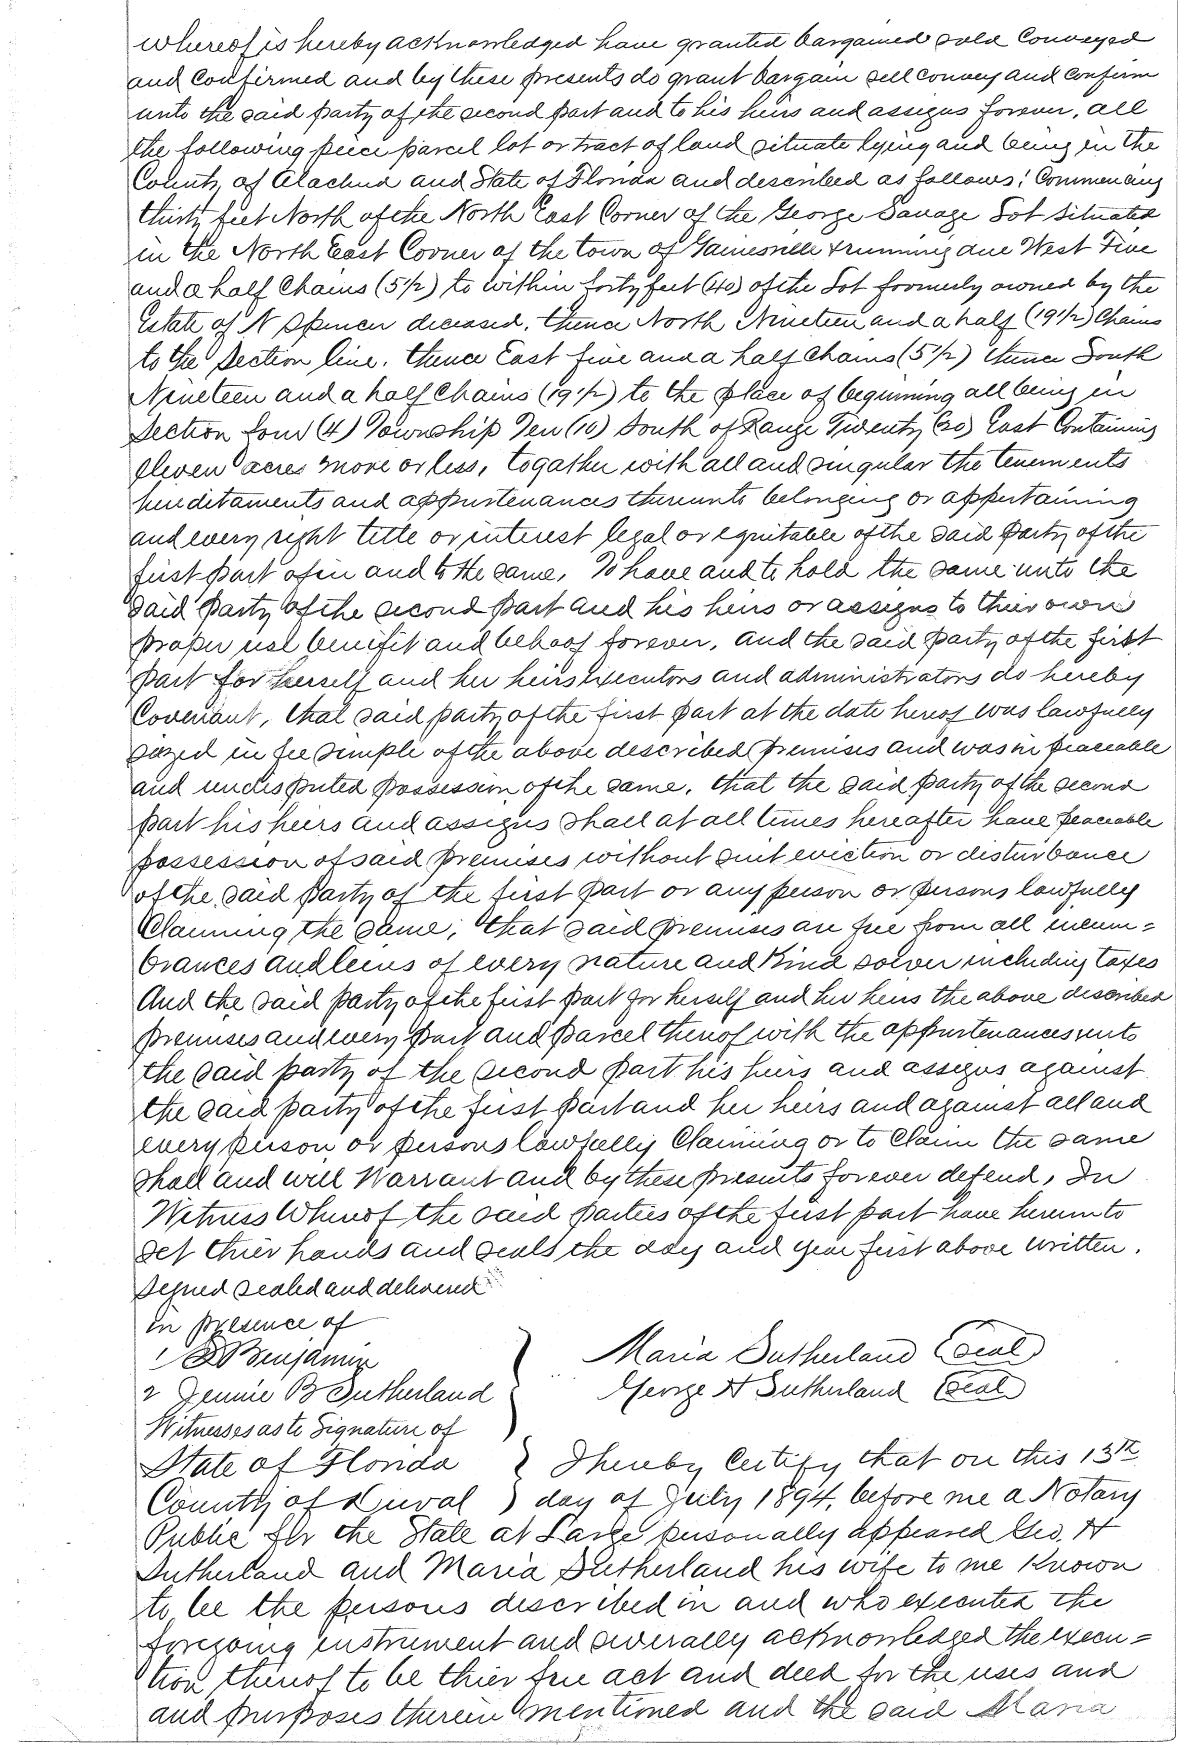 whereof is hereby acknowledged have granted bargained sold conveyed
and confirmed and by these presents do grant bargain sell convey and confirm
unto the said party of the second part and to his heirs and assigns forever, all
the following peice parcel lot or tract of land situate lying and being in the
County of Alachua and State of Florida and described as follows: Commencing
thirty feet North of the North East Corner of the George Savage Lot situated
in the North East Corner of the town of Gainesville & running due West Five
and a half Chains (5 1/2) to within forty feet (40) of the Lot formerly owned by the
Estate of N Spencer deceased, thence North Nineteen and a half (19 1/2) Chains
to the Section line. thence East five and a half Chains (5 1/2) thence South
Nineteen and a half Chains (19 1/2) to the place of beginning all being in
Section four (4) Township Ten (10) South of Range Twenty (20) East Containing
eleven acres more or less, togather with all and singular the tenements
hereditaments and appurtenances thereunto belonging or appertaining
and every right title or interest legal or equitable of the said party of the
first part of in and to the same, To have and to hold the same unto the
said party of the second part and his heirs or assigns to thier own
proper use benefit and behoof forever, And the said party of the first
part for herself and her heirs executors and administrators do hereby
Covenant, that said party of the first part at the date hereof was lawfully
siezed in fee simple of the above described premises and was in peaceable
and undisputed possession of the same, that the said party of the second
part his heirs and assigns shall at all times hereafter have peaceable
possession of said premises without suit eviction or disturbance
of the said party of the first part or any person or persons lawfully
Claiming the same, that said premises are free from all incum=
brances and leins of every nature and Kind soever including taxes
And the said party of the first part for herself and her heirs the above described
premises and every part and parcel thereof with the appurtenances unto
the said party of the second part his heirs and assigns against
the said party of the first part and her heirs and against all and
every person or persons lawfully Claiming or to Claim the same
shall and will Warrant and by these presents forever defend, In
Witness Whereof the said parties of the first part have hereunto
set thier hands and seals the day and year first above written.
Signed sealed and delivered
in presence of
1 S Benjamin Maria Sutherland (Seal)
2 Jennie B Sutherland George H Sutherland (Seal)
Witnesses as to Signature of
State of Florida } I hereby Certify that on this 13th
County of Duval } day of July 1894, before me a Notary
Public for the State at Large personally appeared Geo. H
Sutherland and Maria Sutherland his wife to me Known
to be the persons described in and who executed the
foregoing instrument and severally acknowledged the execu=
tion thereof to be thier free act and deed for the uses and
and purposes therein mentioned and the said Maria